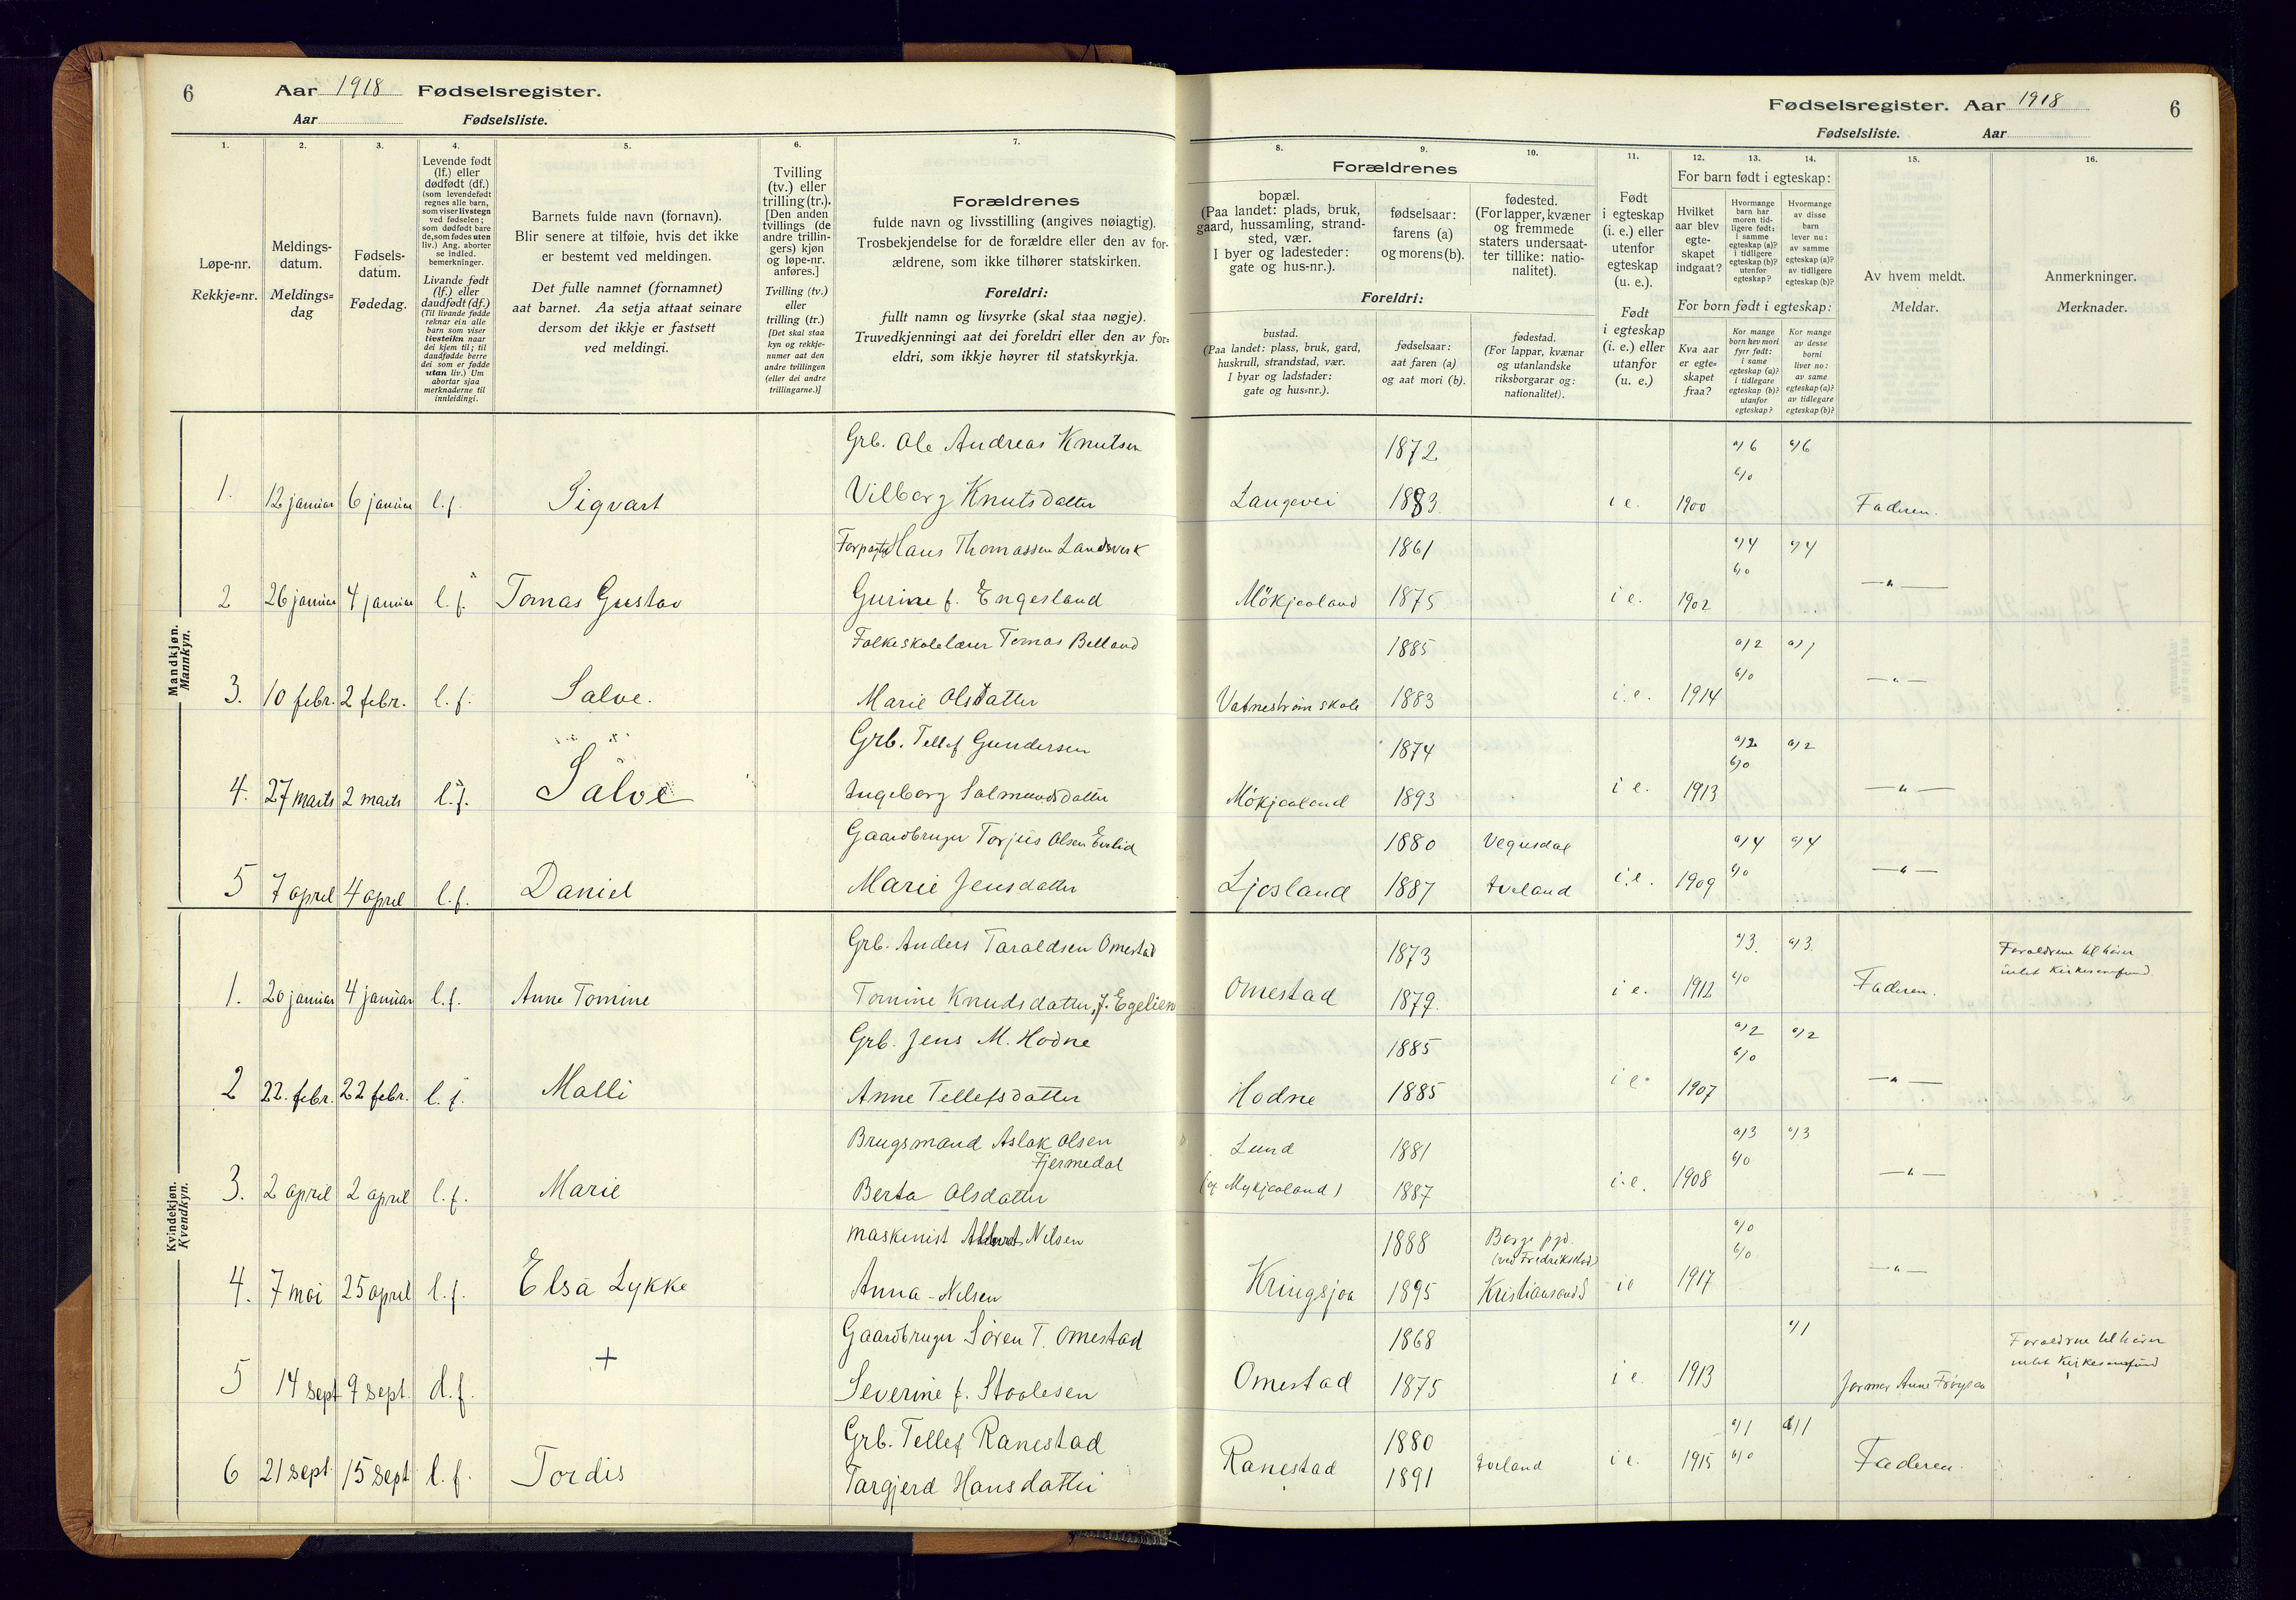 6
Aar 1918 Fødselsregister.
Aar Fødselsliste.
Fødselsregister. Aar 1918
6
Fødselsliste. Aar
1.
Løpe-nr.
Rekkje=nr.
2.
Meldings-
datum.
Meldings=
dag
3.
Fødsels-
datum.
Fødedag.
4.
Levende født
(lf.) eller
dødfødt (df.)
(som levendefødt
regnes alle barn,
som viser livstegn
ved fødselen;
som dødfødt bare
de, som fødes uten
liv.) Ang. aborter
se indled.
bemerkninger.
Livande født
(lf.) eller
daudfødt (df.)
(Til livande fødde
reknar ein alle
barn som viser
livsteikn naar
dei kjem til; til
daudfødde berre
dei som er fødde
utan liv.) Um
abortar sjaa
merknaderne til
innleidingi.
5.
Barnets fulde navn (fornavn).
Blir senere at tilføie, hvis det ikke
er bestemt ved meldingen.
Det fulle namnet (fornamnet)
aat barnet. Aa setja attaat seinare
dersom det ikkje er fastsett
ved meldingi.
6.
Tvilling
(tv.) eller
trilling (tr.).
[Den anden
tvillings (de
andre trillin-
gers) kjøn
og løpe-nr.
anføres.]
Tvilling (tv.)
eller
trilling (tr.)
[Det skal staa
kyn og rekkje-
numer aat den
andre tvillingen
(eller dei andre
trillingarne.)]
7.
Forældrenes
fulde navn og livsstilling (angives nøiagtig).
Trosbekjendelse for de forældre eller den av for-
ældrene, som ikke tilhører statskirken.
Foreldri:
fullt namn og livsyrke (skal staa nøgje).
Truvedkjenningi aat dei foreldri eller den av for=
eldri, som ikkje høyrer til statskyrkja.
Forældrenes
8.
bopæl.
(Paa landet: plads, bruk,
gaard, hussamling, strand-
sted, vær.
I byer og ladesteder:
gate og hus-nr.).
9.
fødselsaar:
farens (a)
og morens (b).
10.
fødested.
(For lapper, kvæner
og fremmede
staters undersaat-
ter tillike: natio-
nalitet).
Foreldri:
bustad.
(Paa landet: plass, bruk, gard,
huskrull, strandstad, vær.
I byar og ladstader:
gate og hus=nr.).
fødselsaar:
aat faren (a)
og aat mori (b).
fødestad.
(For lappar, kvænar
og utanlandske
riksborgarar og:
nationalitet).
11.
Født
i egteskap
(i. e.) eller
utenfor
egteskap
(u. e.).
Født
i egteskap
(i. e.) eller
utanfor
egteskap
(u. e.)
For barn født i egteskap:
12.
Hvilket
aar blev
egte-
skapet
indgaat?
13.
Hvormange
barn har
moren tid-
ligere født:
i samme
egteskap (a)?
i tidligere
egteskap (b)?
utenfor
egteskap?
14.
Hvormange
av disse
barn
lever nu:
av samme
egteskap (a)?
av tidligere
egteskap (b)?
For born født i egteskap:
Kva aar
er egte=
skapet
fraa?
Kor mange
born hev mori
fyrr født:
i same
egteskap (a)?
i tidlegare
egteskap (b)?
utanfor
egteskap?
Kor mange
av desse
borni
liver no:
av same
egteskap (a)?
av tidlegare
egteskap (b)?
15.
Av hvem meldt.
Meldar.
16.
Anmerkninger.
Merknader.
Mandkjøn.
Mannkyn.
Grb. Ole Andreas Knutsen 1872 a/6 a/6
b/0
1. 12 januar 6 januar l.f. Sigvart Vilborg Knutsdatter Langevei 1883 i e. 1900 Faderen.
Forpagter Hans Thomassen Landsverk 1861 a/4 a/4
b/0
2 26 januar 4 januar l. f. Tomas Gustav Gurine f. Engesland Mökjaaland 1875 i e. 1902 —"—
Folkeskolelærer Tomas Belland 1885 a/2 a/1
b/0
3. 10 febr. 2 febr. l. f. Salve. Marie Olsdatter Vatnestrøm skole 1883 i. e. 1914 —"—
Grb. Tellef Gundersen 1874 a/2 a/2
b/0
4. 27 marts 2 marts l. f. Salve Ingeborg Salmundsdatter Mökjaaland 1893 i e. 1913 —"—
Gaardbruger Torjus Olsen Evlid 1880 Vegusdal a/4 a/4
b/0
5 7 april 4 april l. f. Daniel Marie Jensdatter Ljosland 1887 Iveland i. e. 1909 —"—
Kvindekjøn.
Kvendkyn.
Grb. Anders Taraldsen Omestad 1873 a/3. a/3. Foraldrene tilhører
b/0 intet Kirkesamfund
1. 20 januar 4 januar l.f. Anne Tomine Tomine Knudsdatter, f. Egelien Omestad 1879. i e. 1912 Faderen.
Grb. Jens M. Hodne 1885 a/2 a/2
b/0
2 22. febr. 22 febr. l. f. Malli Anne Tellefsdatter Hodne 1885 i e. 1907 —"—
Brugsmand Aslak Olsen Lund 1881 a/3 a/3
Fjermedal b/0
3. 2 april 2 april l. f. Marie Berta Olsdatter (af Mykjaaland) 1887 i. e. 1908 —"—
maskinist Nilsen 1888 Borge pgd. a/0
(ved Fredrikstad) b/0
4. 7 mai 25 april l. f. Elsa Lykke Anna Nilsen Kringsjaa 1895 Kristiansand S i e 1917 —"—
Gaardbruger Søren T. Omestad 1868 a/1 Foraldrne tilhører
+ intet Kirkesamfund
5 14 sept 9 sept. d. f. Severine f. Staalesen Omestad 1875 i e. 1913 Jormor Anne
Grb. Tellef Ranestad 1880 a/1 a/1
6 21 sept. 15 sept l. f. Tordis Targjerd Hansdatter Ranestad 1891 Iveland i e. 1915 b/0 Faderen.